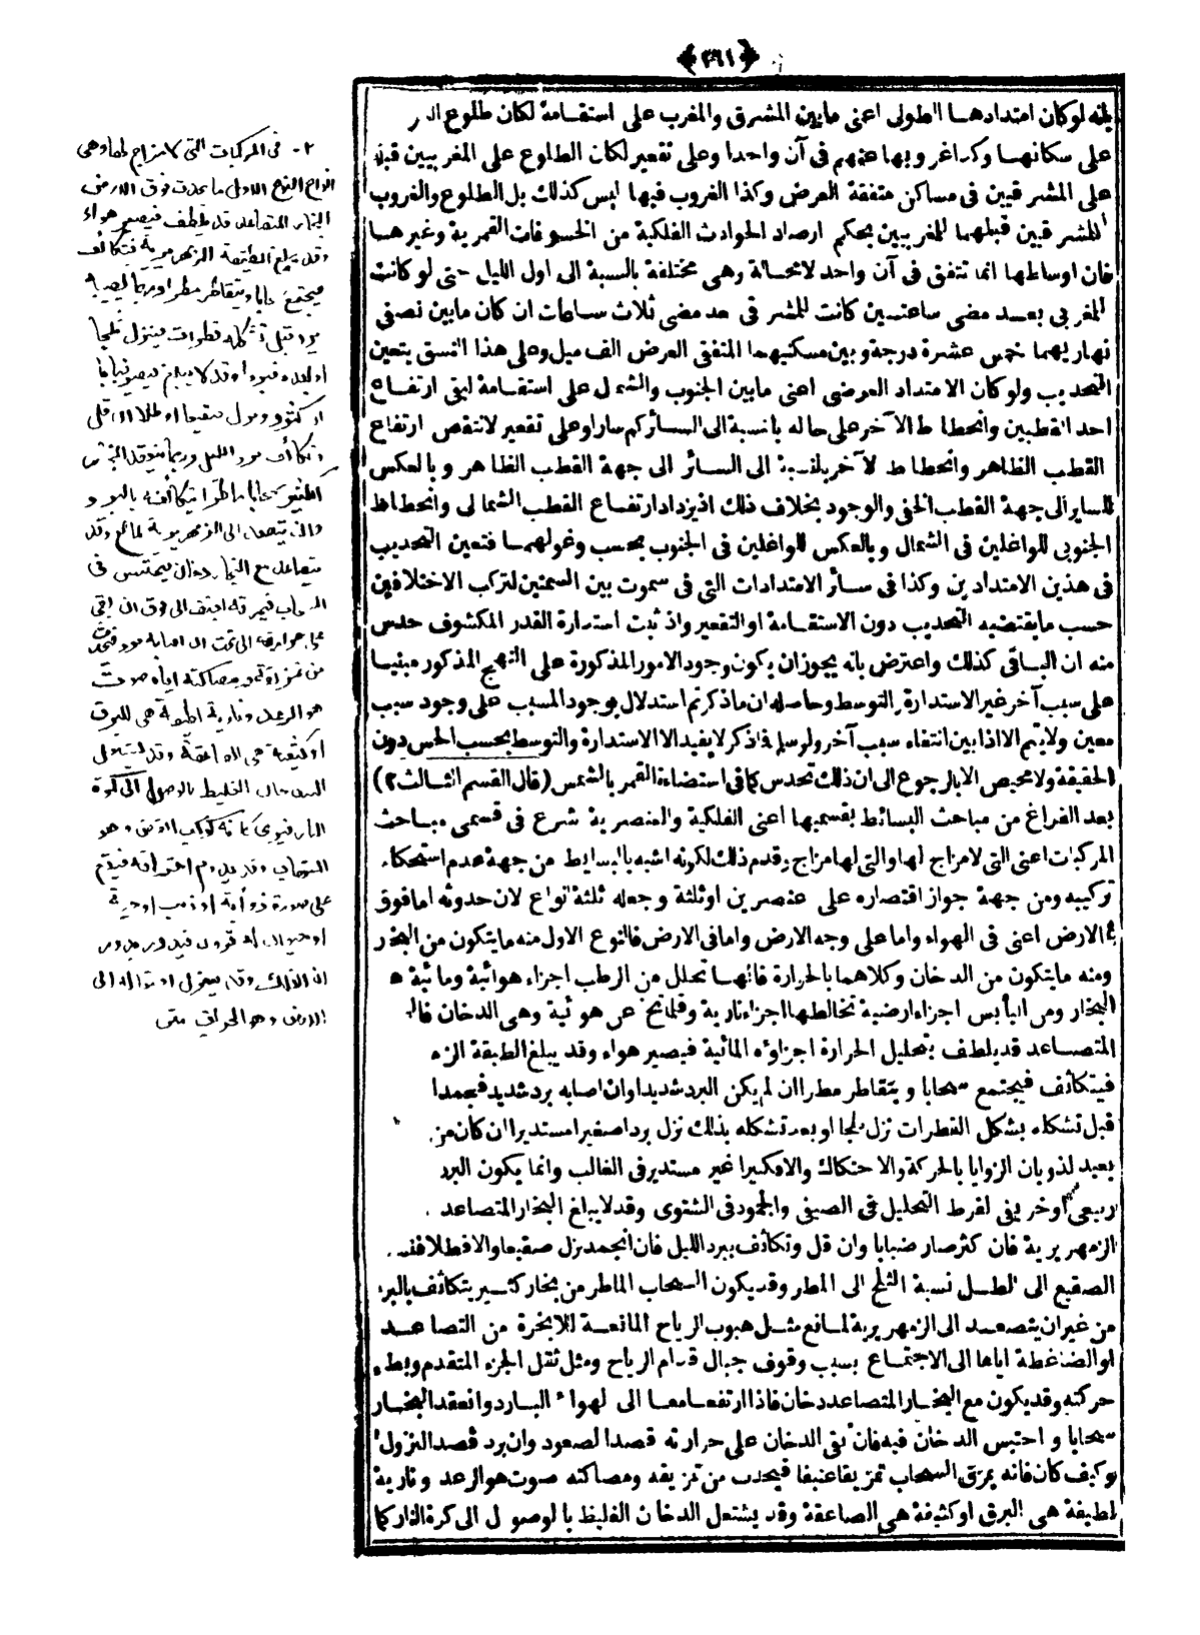 ﴿٣٦١﴾
بانه لو كان امتدادها الطولى اعنى ما بين المشرق والمغرب على استقامة لكان طلوع
على سكانها وكذا غروبها عنهم فى آن واحدا وعلى تقعير لكان الطلوع على المغربيين قبله
على المشرقيين فى مساكن متفقة العرض وكذا الغروب فيها ليس كذلك بل الطلوع والغروب
للمشرقيين قبلهما للمغربيين بحكم ارصاد الحوادث الفلكية من الخسوفات القمرية وغيرهما
فان اوساطها انما تتفق فى آن واحد لا محالة وهى مختلفة بالنسبة الى اول الليل حتى لو كانت
للمغربى بعد مضى ساعتين كانت للمشرقى بعد مضى ثلاث ساعات ان كان ما بين نصفى
نهاريهما خمس عشرة درجة وبين مسكنيهما المتفقى العرض الف ميل وعلى هذا النسق يتعين
التحديب ولو كان الامتداد العرضى اعنى ما بين الجنوب والشمال على استقامة لبقى ارتفاع
احد القطبين وانحطاط الآخر على حاله بالنسبة الى السائر كم سار او على تقعير لانتقص ارتفاع
القطب الظاهر وانحطاط الآخر بالنسبة الى السائر الى جهة القطب الظاهر وبالعكس
للساير الى جهة القطب الخفى والوجود بخلاف ذلك اذ يزداد ارتفاع القطب الشمالى وانحطاط
الجنوبى للواغلين فى الشمال وبالعكس للواغلين فى الجنوب بحسب وغولهما فتعين التحديب
فى هذين الامتدادين وكذا فى سائر الامتدادات التى فى سموت بين السمتين لتركب الاختلافين
حسب ما يقتضيه التحديب دون الاستقامة او التقعير واذ ثبت استدارة القدر المكشوف حدس
منه ان الباقى كذلك واعترض بانه يجوز ان يكون وجود الامور المذكورة على النهج المذكور مبنيا
على سبب آخر غير الاستدارة والتوسط وحاصله ان ما ذكرتم استدلال بوجود المسبب على وجود سبب
معين ولا يتم الا اذا بين انتفاء سبب آخر ولو سلم فما ذكر لا يفيد الا الاستدارة والتوسط بحسب الحس دون
الحقيقة ولا محيص الا بالرجوع الى ان ذلك تحدس كما فى استضاءة القمر بالشمس (قال القسم الثالث ٢)
بعد الفراغ من مباحث البسائط بقسميها اعنى الفلكية والعنصرية شرع فى قسمى مباحث
المركبات اعنى التى لا مزاج لها والتى لها مزاج وقدم ذلك لكونه اشبه بالبسايط من جهة عدم استحكام
تركيبه ومن جهة جواز اقتصاره على عنصرين او ثلثة وجعله ثلثة انواع لان حدوثه اما فوق
الارض اعنى فى الهواء واما على وجه الارض واما فى الارض فالنوع الاول منه ما يتكون من البخار
ومنه ما يتكون من الدخان وكلاهما بالحرارة فانها تحلل من الرطب اجزاء هوائية ومائية
البخار ومن اليابس اجزاء ارضية تخالطها اجزاء نارية وقلما تخ عن هوائية وهى الدخان
المتصاعد قد يلطف بتحليل الحرارة اجزاؤه المائية فيصير هواء وقد يبلغ الطبقة
فيتكاثف فيجتمع سحابا ويتقاطر مطرا ان لم يكن البرد شديدا وان اصابه برد شديد فجمد
قبل تشكله بشكل القطرات نزل ثلجا او بعد تشكله بذلك نزل بردا صغيرا مستديرا ان كان من
بعيد لذوبان الزوايا بالحركة والاحتكاك والافكبيرا غير مستدير فى الغالب وانما يكون البرد
ربيعى او خريفى لفرط التحليل فى الصيفى والجمود فى الشتوى وقد لا يبلغ البخار المتصاعد
الزمهريرية فان كثر صار ضبابا وان قل وتكاثف ببرد الليل فان انجمد نزل صقيعا والا فطلا
الصقيع الى الطل نسبة الثلج الى المطر وقد يكون السحاب الماطر من بخار كثير يتكاثف بالبرد
من غير ان يتصعد الى الزمهريرية لمانع مثل هبوب الرياح المانعة للابخرة من التصاعد
او الضاغطة اياها الى الاجتماع بسبب وقوف جبال قدام الرياح ومثل ثقل الجزء المتقدم وبطء
حركته وقد يكون مع البخار المتصاعد دخان فاذا ارتفعا معا الى الهواء البارد وانعقد البخار
سحابا واحتبس الدخان فيه فان بقى الدخان على حرارته قصد الصعود وان برد قصد النزول
وكيف كان فانه يمزق السحاب تمزيقا عنيفا فيحدث من تمزيقه ومصاكته صوت هو الرعد ونارية
لطيفة هى البرق او كثيفة هى الصاعقة وقد يشتعل الدخان الغليظ بالوصول الى كرة النار كما
٢- فى المركبات التى لا مزاج لها وهى
انواع النوع الاول ما يحدث فوق الارض
البخار المتصاعد قد يلطف فيصير هواء
وقد يبلغ الطبقة الزمهريرية فيتكاثف
فيجتمع سحابا ويتقاطر مطرا وربما يصيبه
برد قبل تشكله قطرات فينزل ثلجا
او بعده فبردا وقد لا يبلغ فيصير ضبابا
ان كثر وينزل صقيعا او طلا ان قل
وتكاثف ببرد الليل
من تمزيقه ومصاكته اياه صوت
هو الرعد ونارية لطيفة هى البرق
او كثيفة هى الصاعقة وقد يشتعل
الدخان الغليظ بالوصول الى كرة
النار فيرى كانه كوكب انقض وهو
الشهاب وقد يدوم احتراقه فيقع
على صورة ذؤابة او ذنب او حية
او حيوان له قرون
الارض وهو الحريق متن